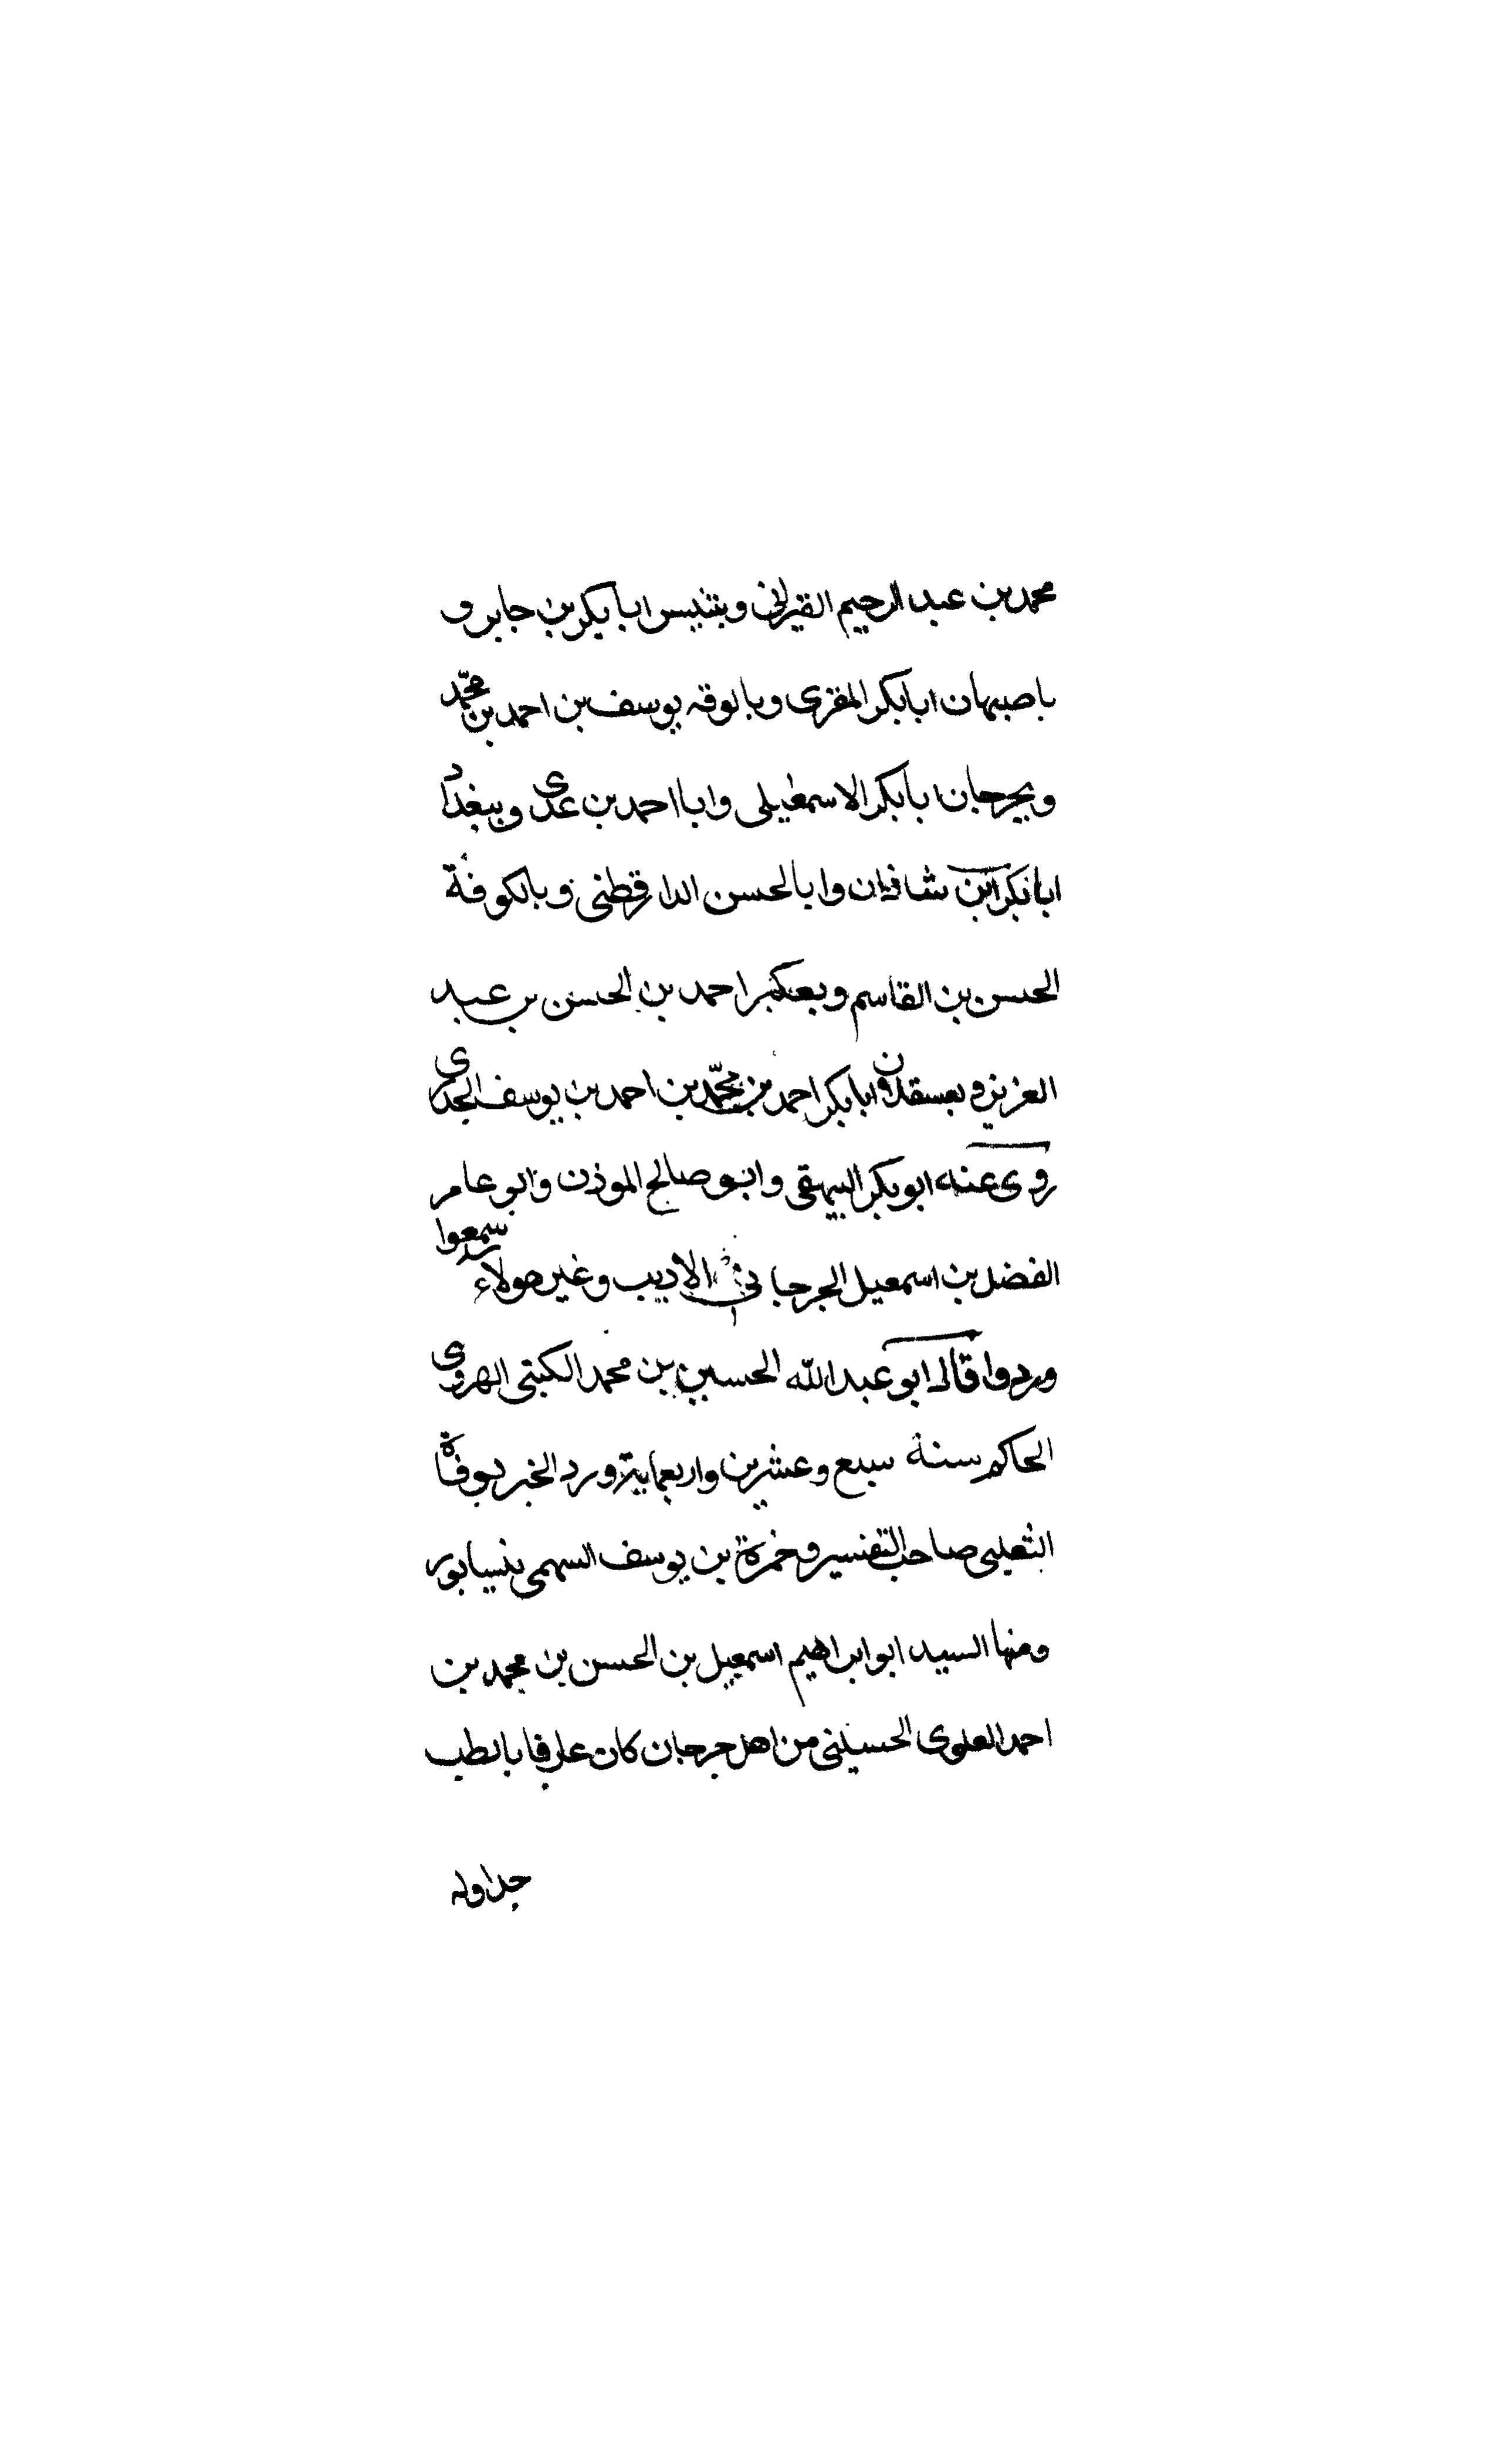 محمد بن عبد الرحيم القيراني وبتنيس ابا بكر بن جابر و
باصبهان ابا بكر المقرى وبالوقه يوسف بن احمد بن محمّد
وبجرجان ابا بكر الاسمعيلى وابا احمد بن عدى وببغداد
ابا بكر ابن شاذان وابا الحسن الدارقطنى وبالكوفة
الحسن بن القاسم وبعكبر احمد بن الحسن بن عبد
العزيز وبعسقلان ابا بكر احمد بن محمّد بن احمد بن يوسف الجدرى
روى عنه ابو بكر البيهقى وابو صالح الموذن وابو عامر
الفضل بن اسمعيل الجرجانى الاديب وغير هولاء سمعوا
وردوا قال ابو عبد الله الحسين بن محمد الكتبى الهروى
الحاكم سنة سبع وعشرين واربعماية ورد الخبر بوفاة
الثعلبى صاحب التفسير وحمزة بن يوسف السهمى بنيسابور
ومنها السيد ابو ابراهيم اسمعيل بن الحسن بن محمد بن
احمد العلوى الحسينى من اهل جرجان كان عارفا بالطب
جدا وله